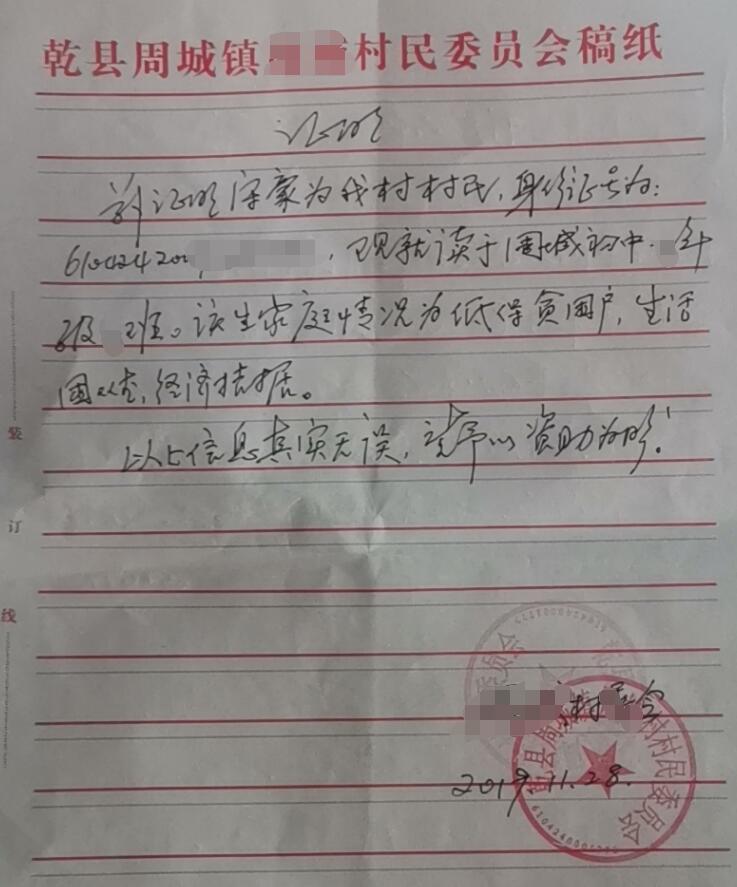 乾县周城镇 村民委员会稿纸
证明
兹证明 为我村村民，身份证号为：
610424200 ，现就读于周城初中 年
级 班。该生家庭情况为低保贫困户，生活
困难，经济拮据。
以上信息真实无误，请予以资助为盼！
装
订
线
村委会
2019.11.28.
乾县周城镇 村村民委员会